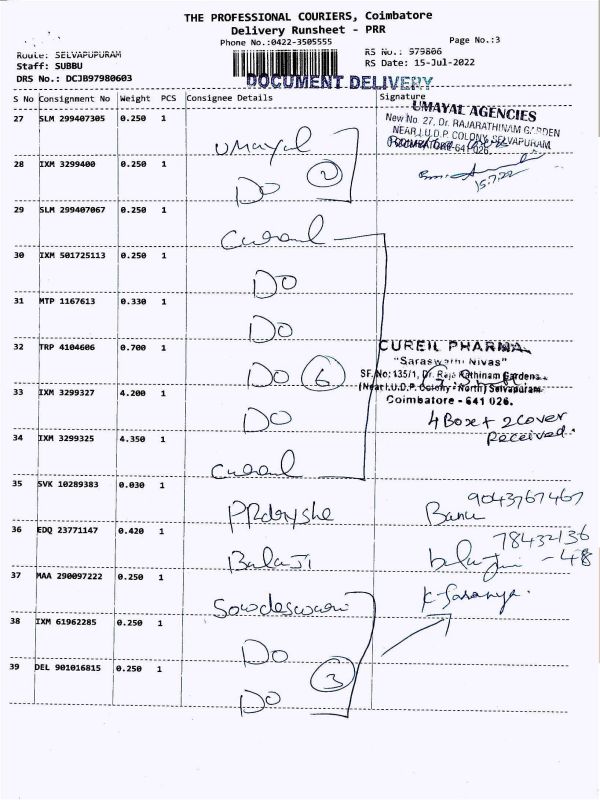 THE PROFESSIONAL COURIERS, Coimbatore
Delivery Runsheet - PRR
Phone No.:0422-3505555
Page No.:3
Route: SELVAPUPURAM
RS No.: 979806
Staff: SUBBU
RS Date: 15-Jul-2022
DRS No.: DCJB97980603
DOCUMENT DELIVERY
S No Consignment No Weight PCS Consignee Details Signature
27 SLM 299407305 0.250 1 Umayal
UMAYAL AGENCIES
New No. 27, Dr. RAJARATHINAM GARDEN
NEAR I.U.D.P. COLONY, SELVAPURAM,
COIMBATORE-641 026.
28 IXM 3299400 0.250 1 DO 2
15.7.22
29 SLM 299407067 0.250 1 Cureul
30 IXM 501725113 0.250 1 DO
31 MTP 1167613 0.330 1 DO
32 TRP 4104606 0.700 1 DO 6
CUREIL PHARMA
"Saraswathi Nivas"
SF.No: 135/1, Dr. Raja Rathinam Gardens
(Near I.U.D.P. Colony - North) Selvapuram
Coimbatore - 641 026.
33 IXM 3299327 4.200 1 DO
4 Box + 2 cover
received.
34 IXM 3299325 4.350 1 Cureul
35 SVK 10289383 0.030 1
9043767467
Banu
36 EDQ 23771147 0.420 1 BalaJi
78432136
balaji - 48
37 MAA 290097222 0.250 1 Sowdeswari
K. Saranya.
38 IXM 61962285 0.250 1 DO
39 DEL 901016815 0.250 1 DO 3